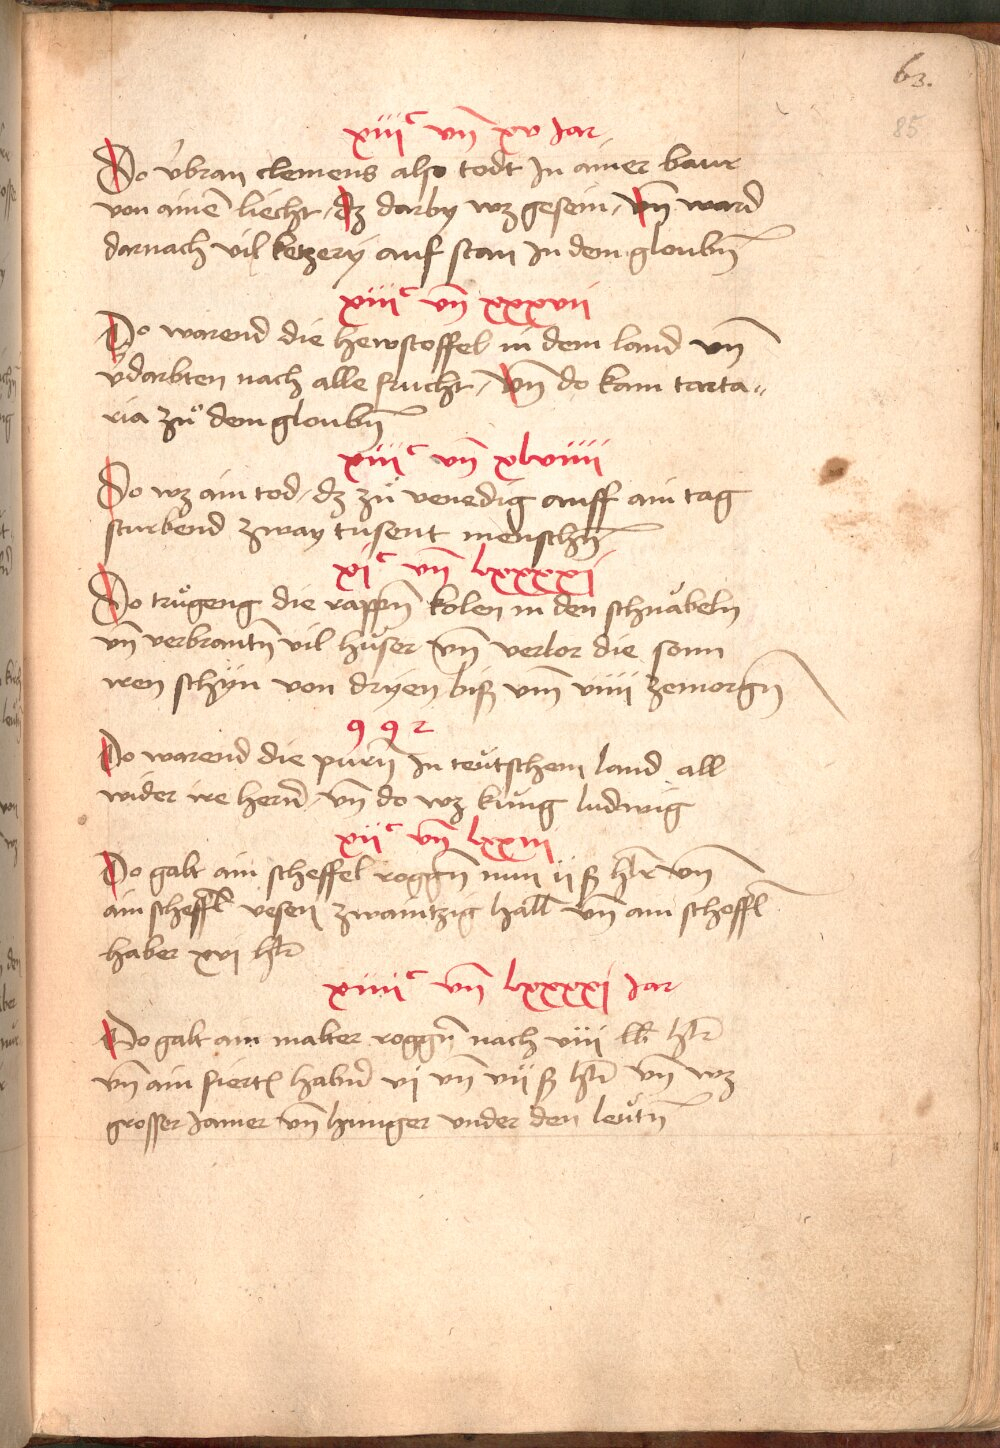 63.
85
xiiiᶜ vn̄ xv Jar
Do v̓bran clemens also todt In ainer baur
von ainē liecht, dz darby wz gesein, vn̄ ward
darnach vil ketzerÿ auf stan In dem gloubn̄
xiiiᶜ vn̄ xxxvii
Do warend die hewstoffel in dem land vnn̄
v̓darbten nach alle frucht, vn̄ do kam tarta„
ria zů dem gloubn̄
xiiiᶜ vn̄ xlviiii
Do wz ain tod, dz zů venedig auff ain tag
sturbend zway tusent menschn̄
xjᶜ vn̄ lxxxxxj
Do trůgeng die rappn̄ kolen in den schnäbeln
vn̄ verbrantn̄ vil hüser vn̄ verlor die sonn
iren schÿn von dryen biß vm̄ viiii zemorgn̄
992
Do warend die purn̄ In teütschem land all
wider ire hern̄, vn̄ do wz küng ludwig
xiiᶜ vn̄ lxxiii
Do galt ain scheffel roggn̄ nun ii ß hlr̄ vnn̄
ain scheffl̄ vesen zwaintzig hall̄ vn̄ ain scheffl̄
haber xvi hlr̄
xiiiiᶜ vn̄ lxxxxj Jar
Do galt ain malter roggn̄ nach viii lb̄ hlr̄
vn̄ ain fiertl̄ habn̄ vj vn̄ vii ß hlr̄ vn̄ wz
grosser Jamer vn̄ hunger vnder den leütn̄